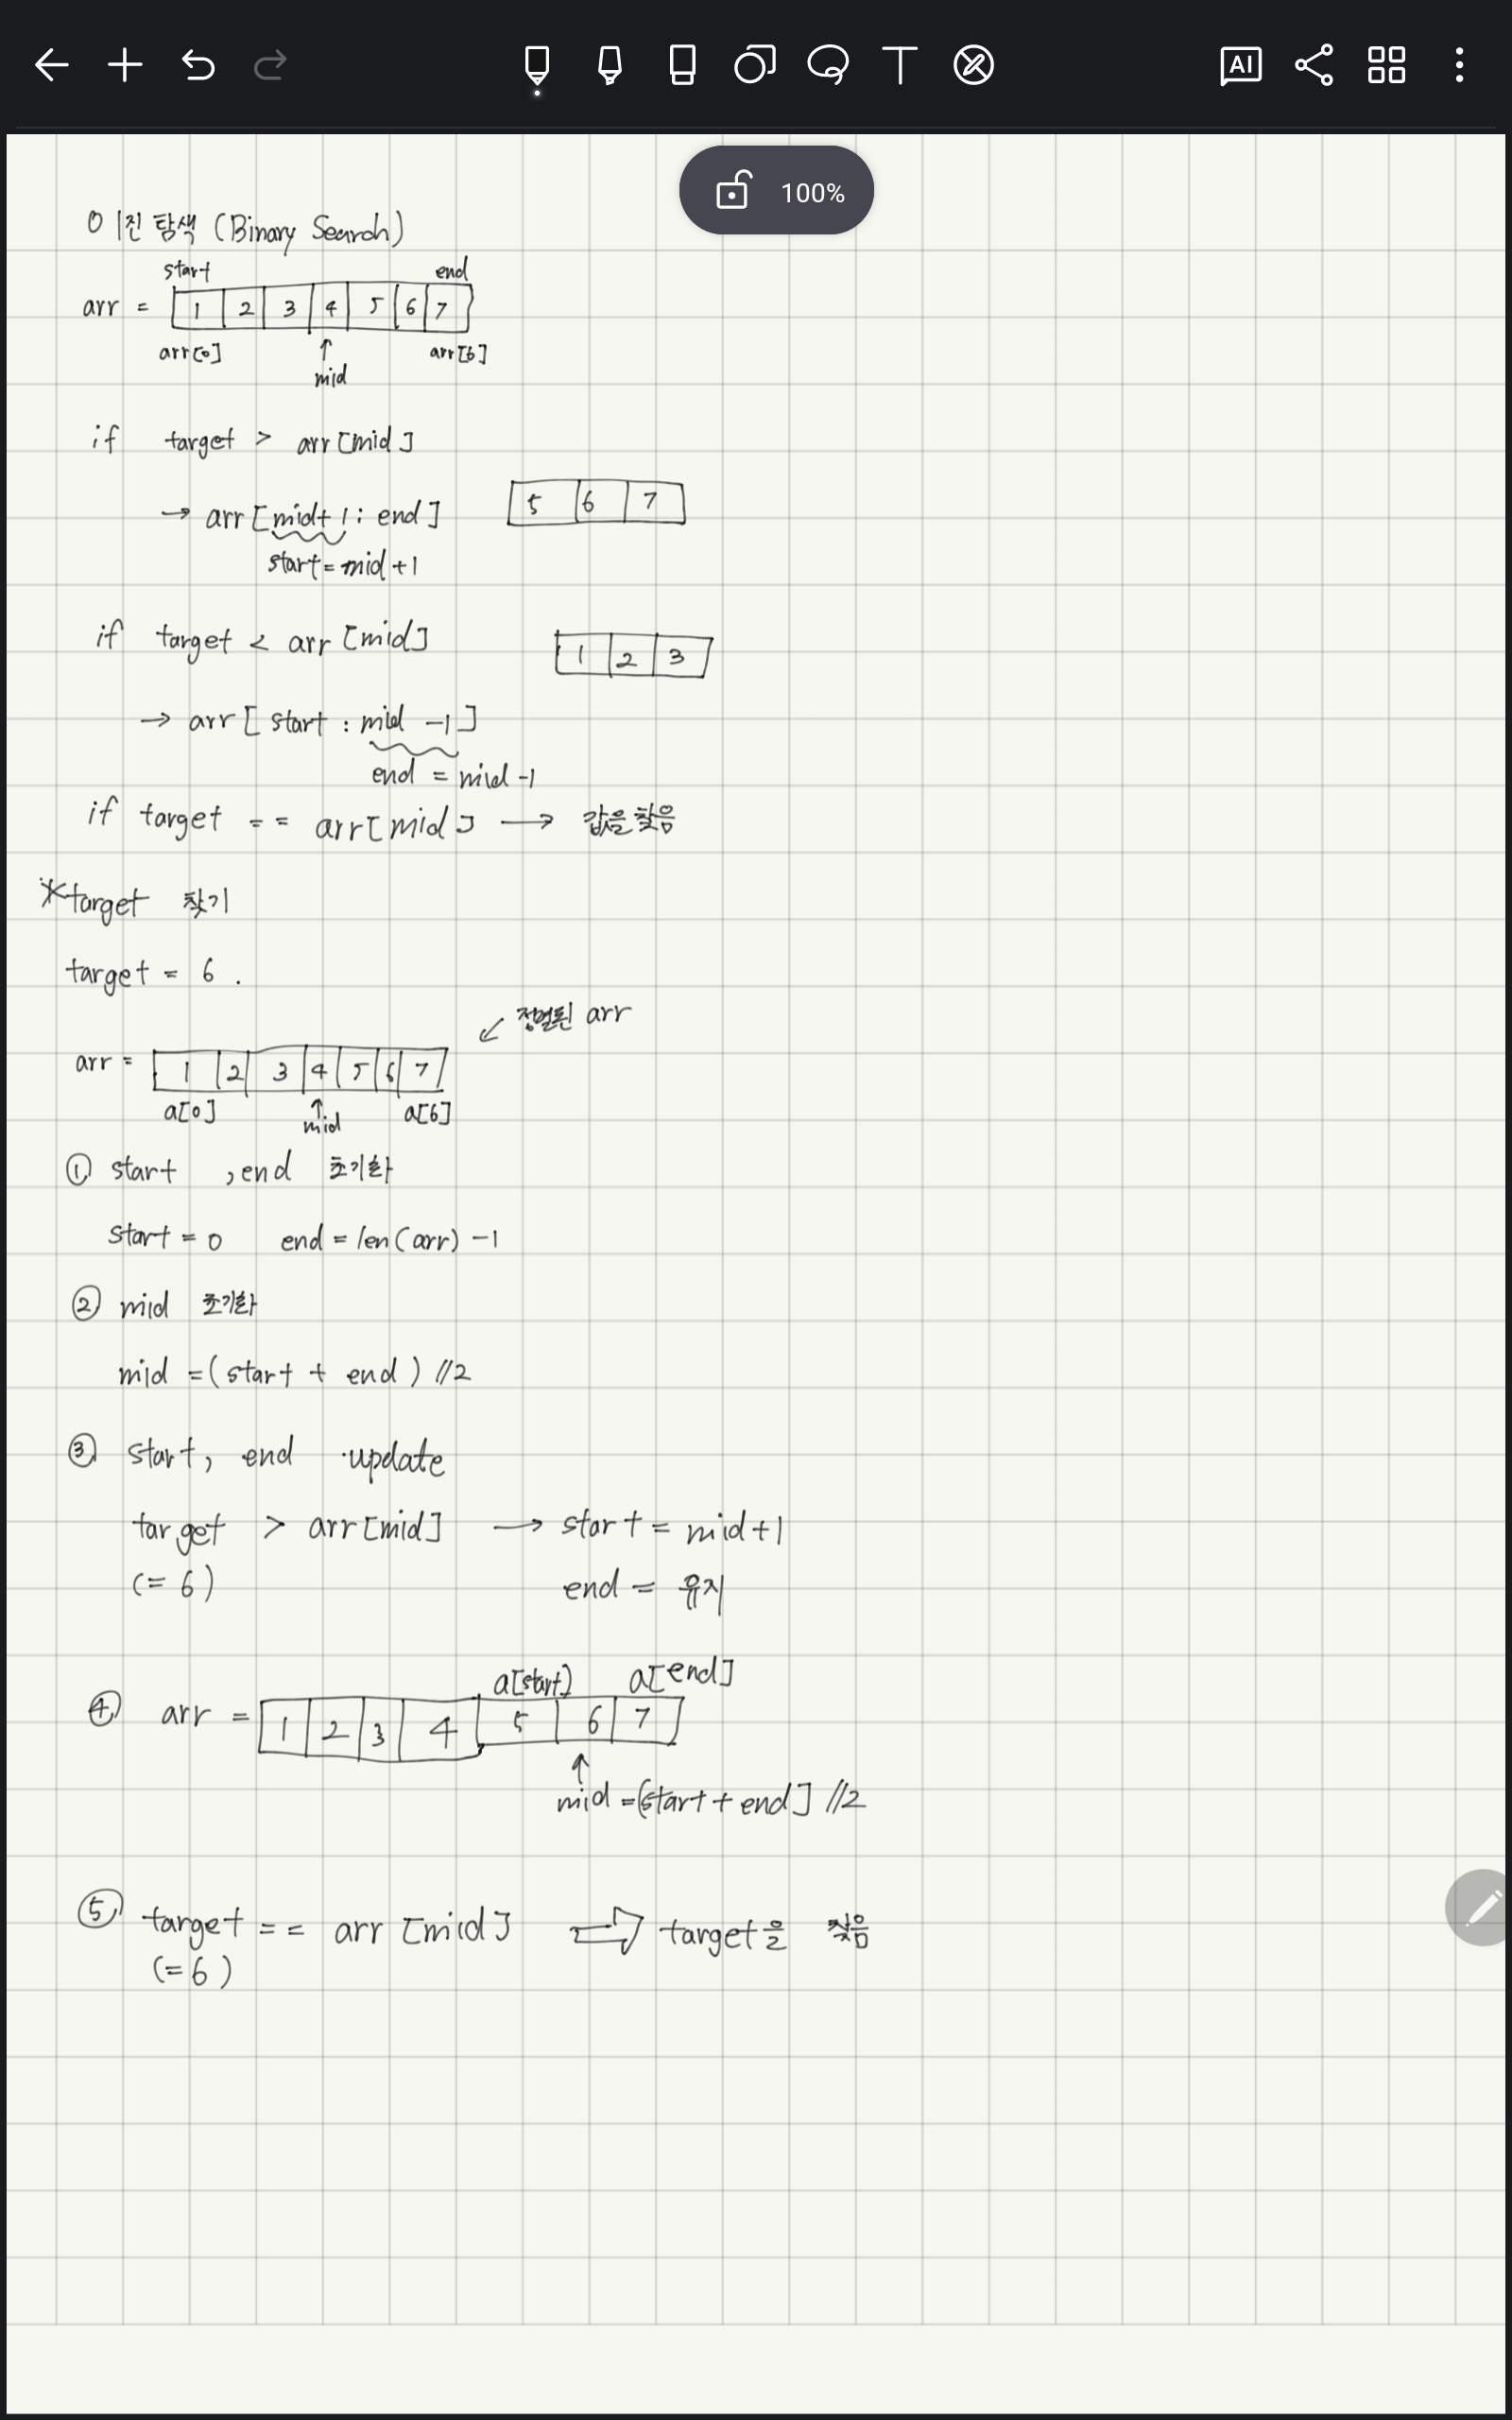 AI
100%
이진 탐색 (Binary Search)
start end
arr = 1 2 3 4 5 6 7
arr[0] ↑ arr[6]
mid
if target > arr[mid]
→ arr[mid+1 : end] 5 6 7
start = mid+1
if target < arr[mid] 1 2 3
→ arr[start : mid -1]
end = mid -1
if target == arr[mid] → 값을 찾음
*target 찾기
target = 6 .
↙ 정렬된 arr
arr = 1 2 3 4 5 6 7
a[0] ↑ a[6]
mid
① start , end 초기화
start = 0 end = len(arr) -1
② mid 초기화
mid = (start + end) //2
③ start, end update
target > arr[mid] → start = mid+1
(= 6) end = 유지
a[start] a[end]
④ arr = 1 2 3 4 5 6 7
↑
mid = (start + end] //2
⑤ target == arr [mid] ⇨ target을 찾음
(= 6)